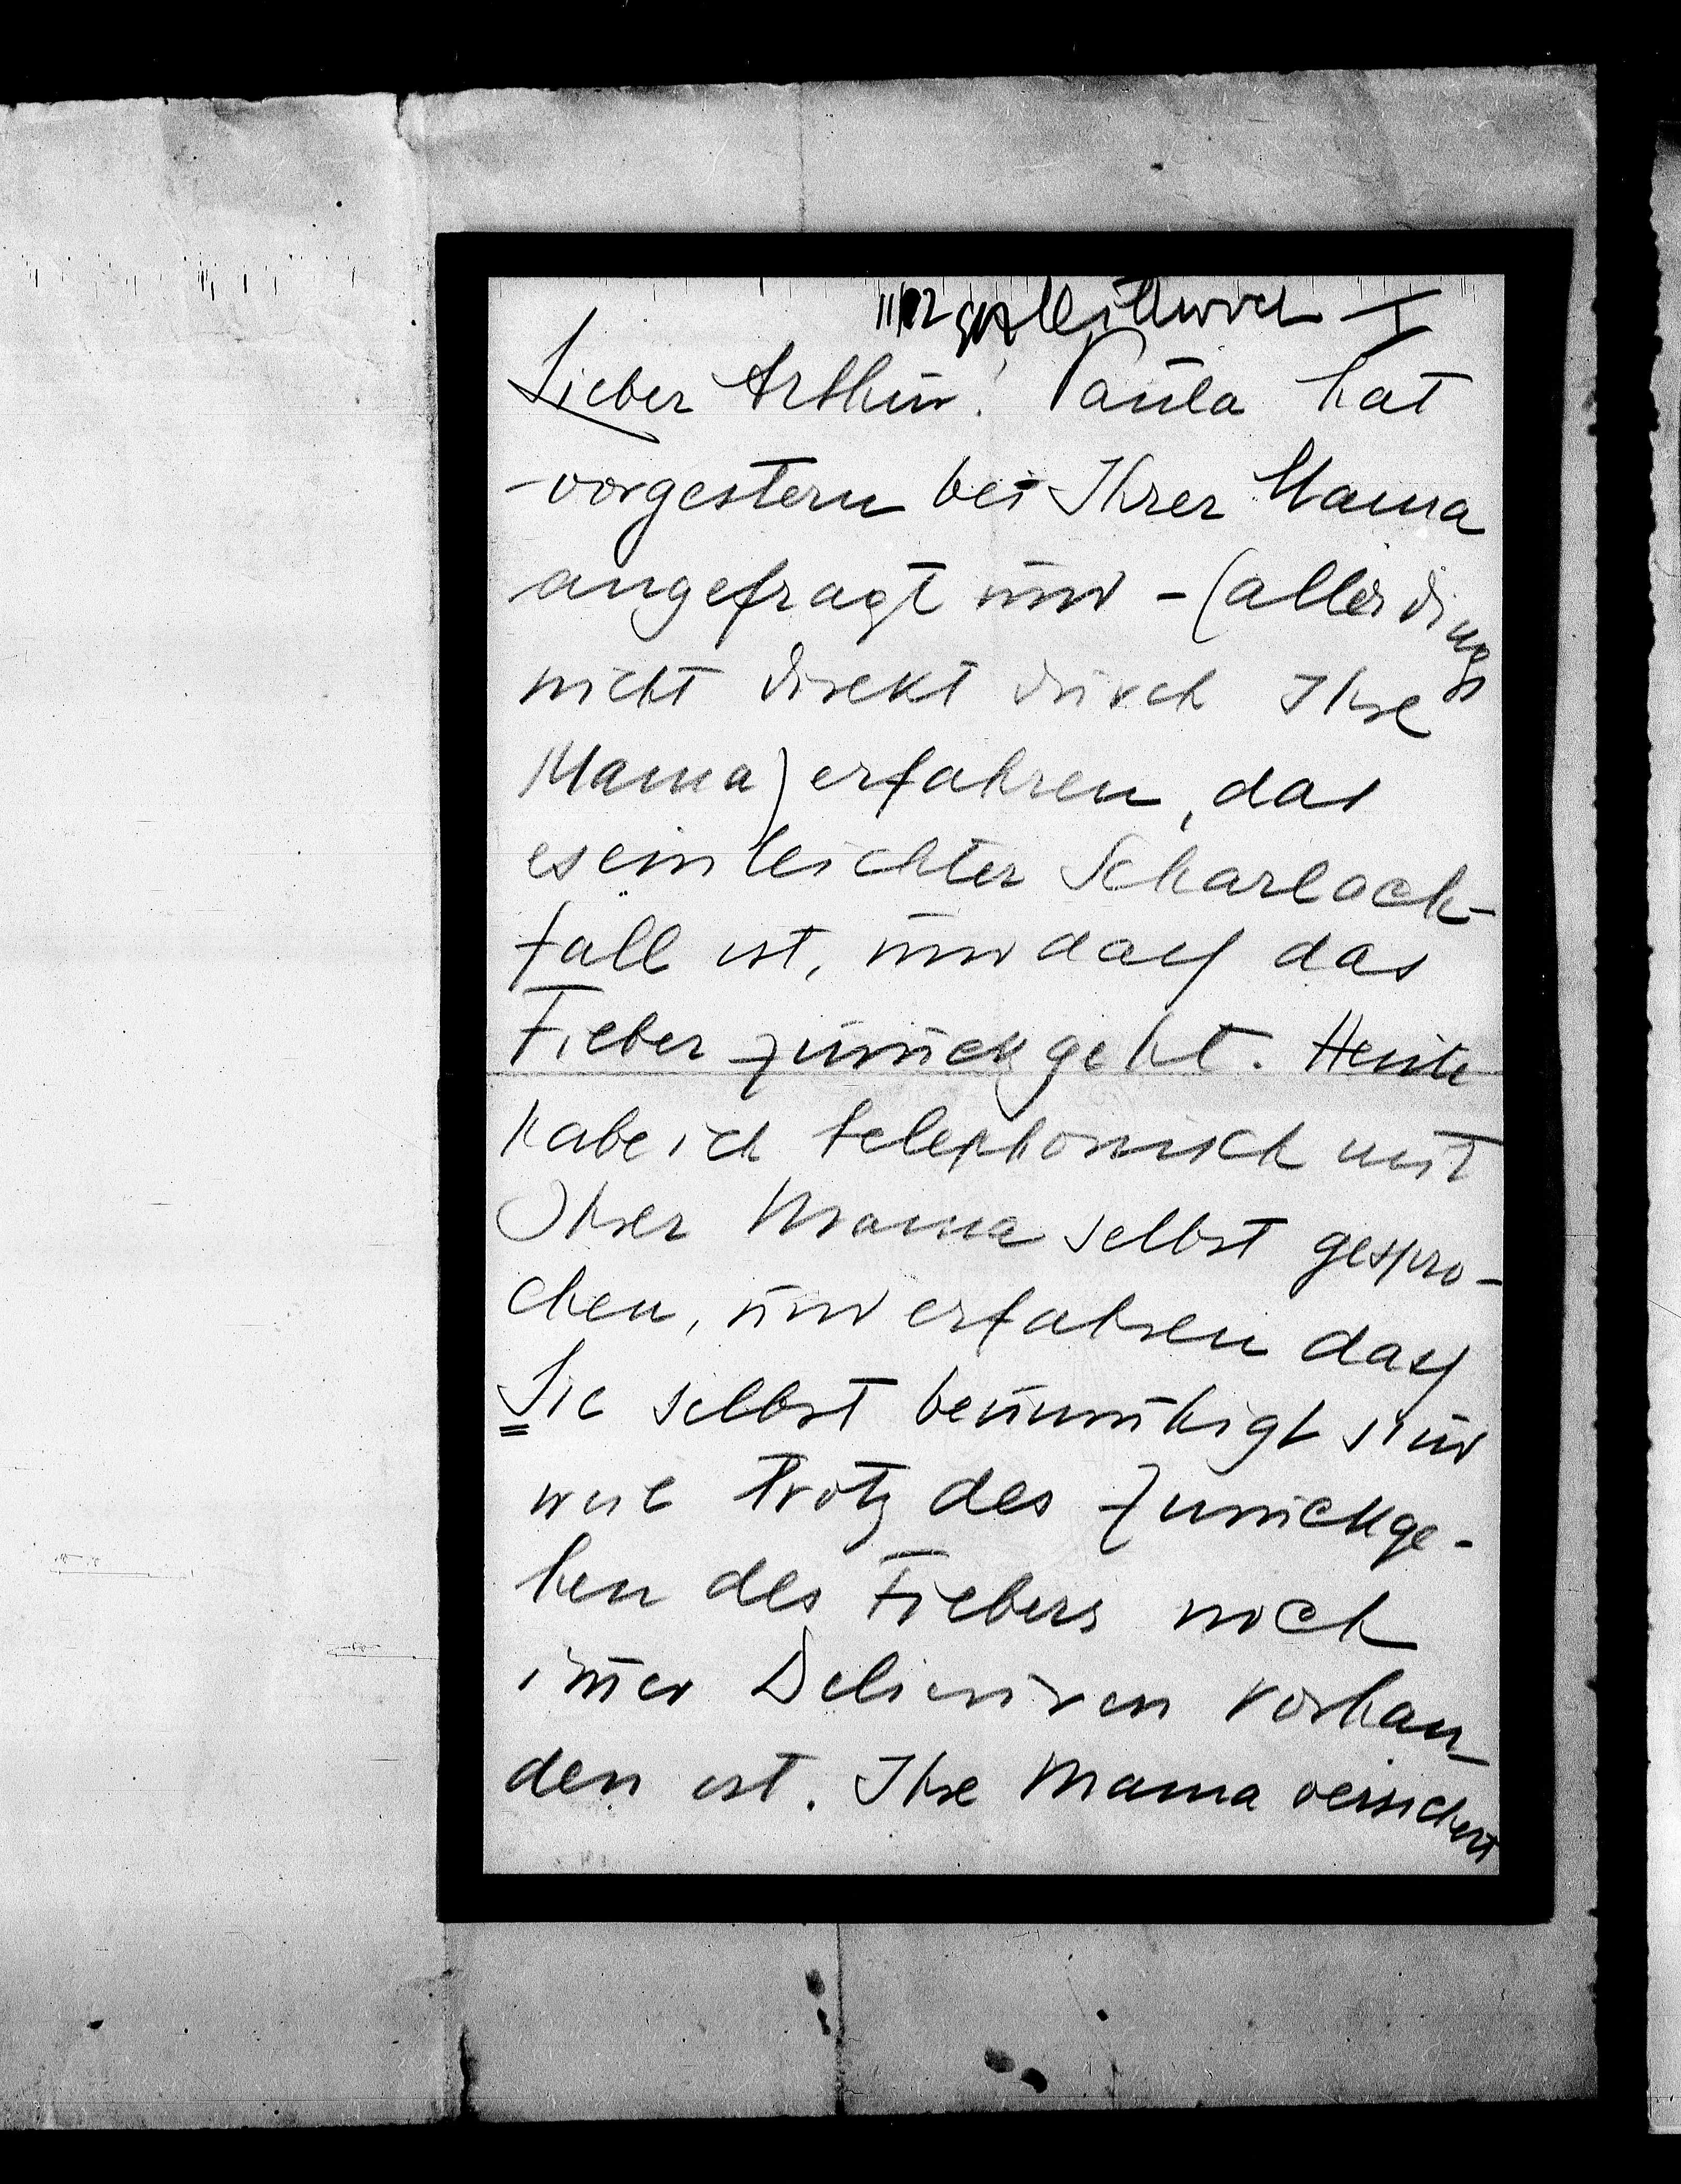 Mittwoch I
Lieber Arthur! Paula hat
vorgestern bei Ihrer Mama
angefragt und – (allerdings
nicht direkt durch Ihre
Mama) erfahren, das
es ein leichter Scharlach-
fall ist, und dass das
Fieber zurückgeht. Heute
habe ich telephonisch mit
Ihrer Mama selbst gespro-
chen, und erfahren dass
Sie selbst beunruhigt sind
weil trotz des Zurückge-
hen des Fiebers noch
im̄er Deliriren vorhan
den ist. Ihre Mama versichert